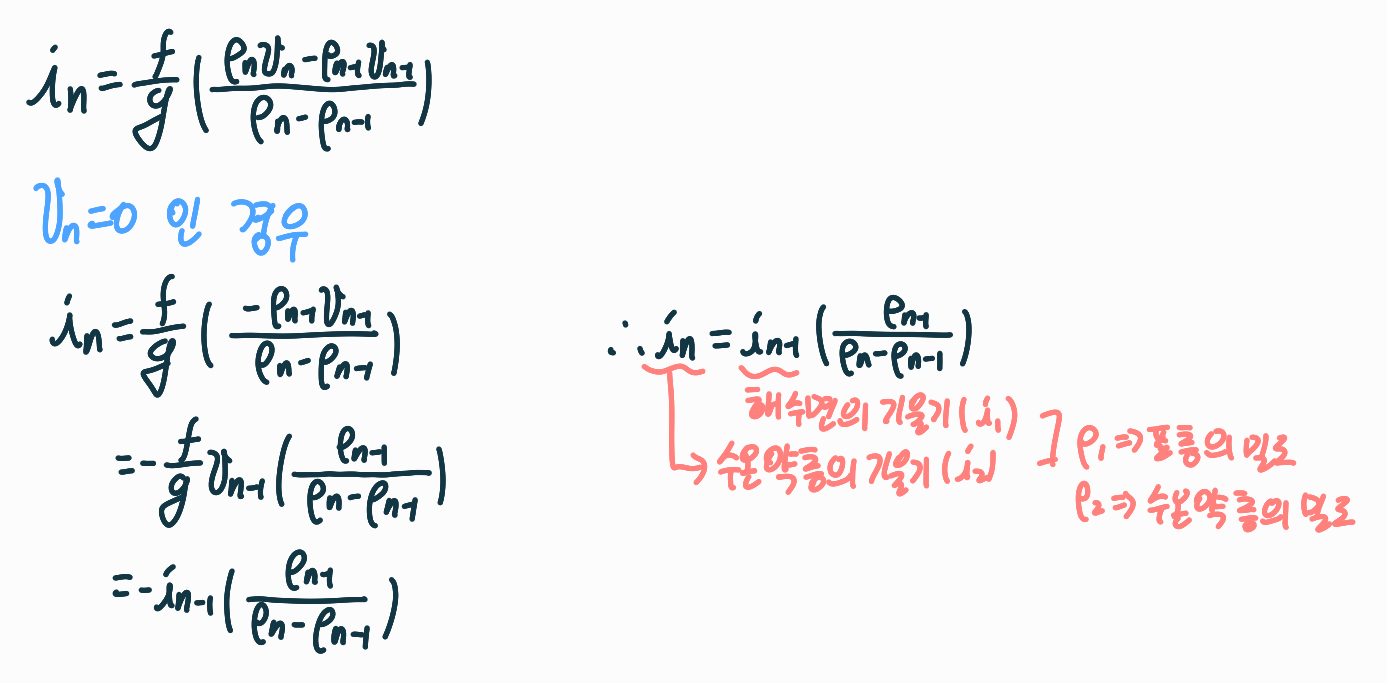 iₙ = f/g ( (ρₙvₙ - ρₙ₋₁vₙ₋₁) / (ρₙ - ρₙ₋₁) )
vₙ = 0 인 경우
iₙ = f/g ( (-ρₙ₋₁vₙ₋₁) / (ρₙ - ρₙ₋₁) )
= - f/g vₙ₋₁ ( ρₙ₋₁ / (ρₙ - ρₙ₋₁) )
= - iₙ₋₁ ( ρₙ₋₁ / (ρₙ - ρₙ₋₁) )
∴ iₙ = iₙ₋₁ ( ρₙ₋₁ / (ρₙ - ρₙ₋₁) )
해수면의 기울기 (i₁)
→ 수온약층의 기울기 (i₂)
] ρ₁ ⇒ 표층의 밀도
ρ₂ ⇒ 수온약층의 밀도